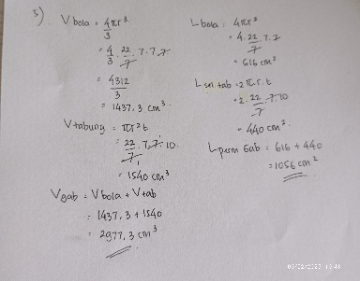 5) V bola = 4/3 πr³
= 4/3 . 22/7 . 7 . 7 . 7
= 4312/3
= 1437,3 cm³.
V tabung = πr²t
= 22/7 . 7 . 7 . 10
= 1540 cm³
Vgab = V bola + V tab
= 1437,3 + 1540
= 2977,3 cm³
L bola = 4πr²
= 4 . 22/7 . 7 . 7
= 616 cm²
L sel tab = 2πr.t
= 2 . 22/7 . 7 . 10
= 440 cm².
L perm Gab = 616 + 440
= 1056 cm²